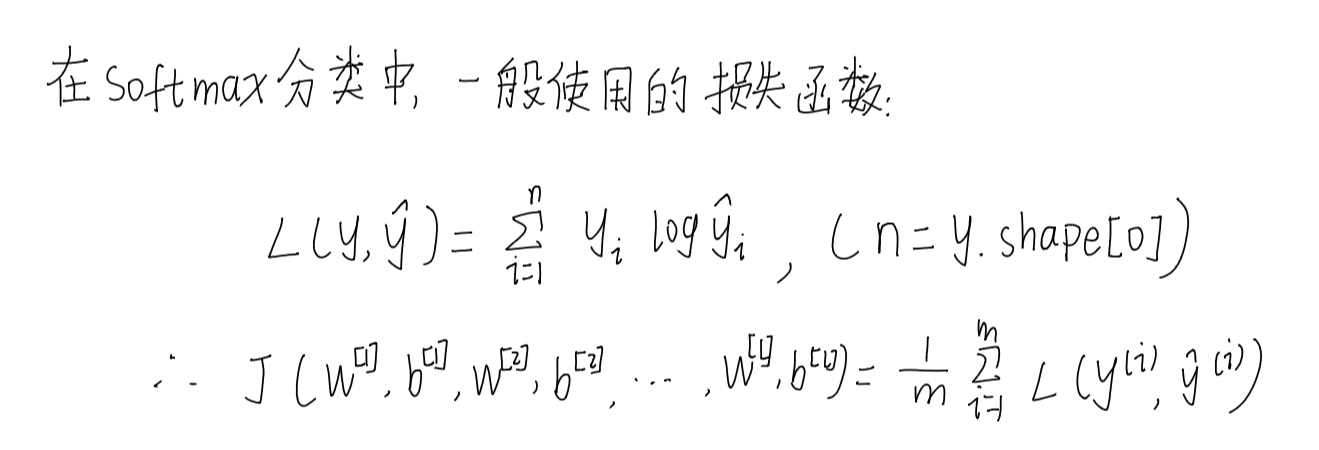 在Softmax分类中,一般使用的损失函数:
L(y,ŷ)=∑_{i=1}^{n} y_i log ŷ_i , (n=y.shape[0])
∴ J(W^{[1]},b^{[1]},W^{[2]},b^{[2]},...,W^{[L]},b^{[L]})=\frac{1}{m} ∑_{i=1}^{m} L(y^{(i)},ŷ^{(i)})